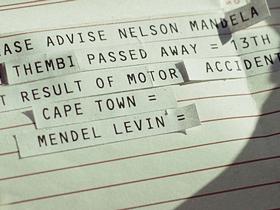 EASE ADVISE NELSON MANDELA
THEMBI PASSED AWAY = 13TH
T RESULT OF MOTOR ACCIDENT
CAPE TOWN =
MENDEL LEVIN =